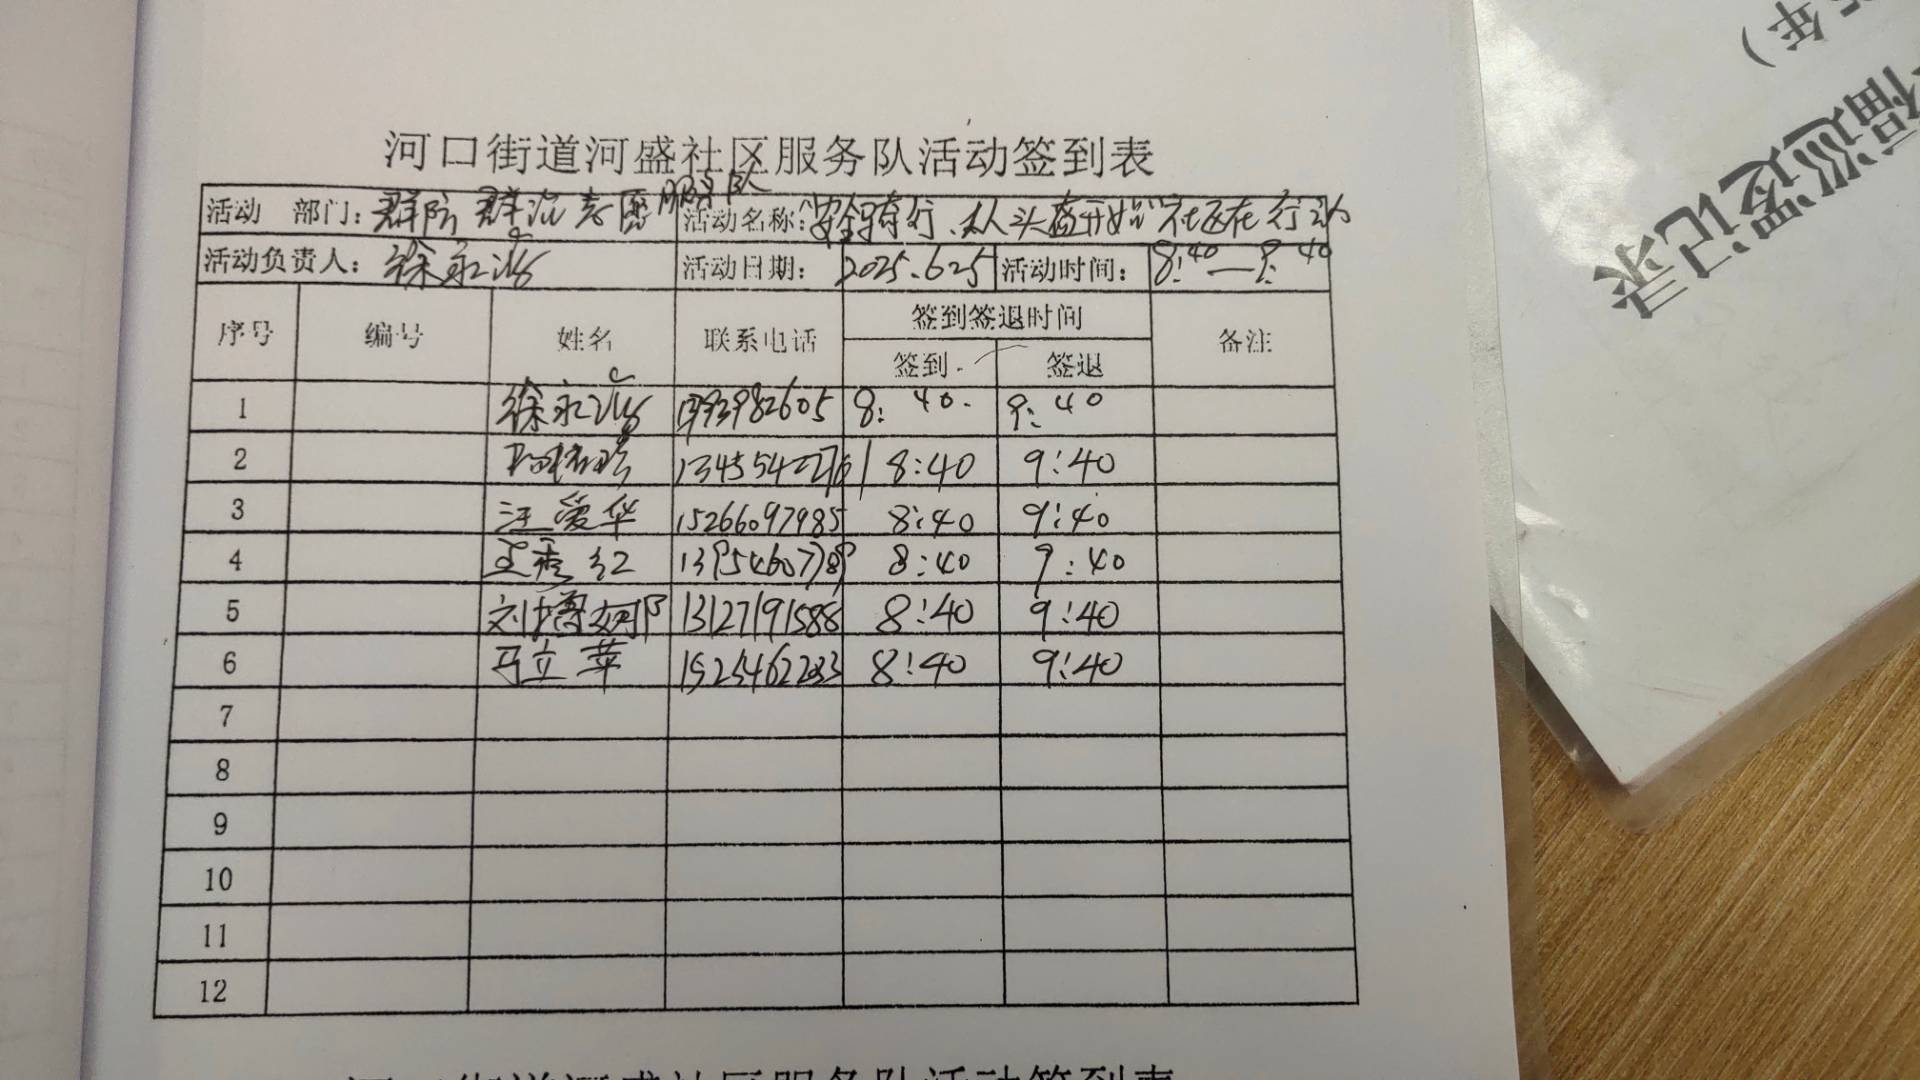 河口街道河盛社区服务队活动签到表
活动 部门：群防群治志愿服务队 活动名称：“安全骑行、从头盔开始”社区在行动
活动负责人：徐永 活动日期：2025.6.25 活动时间：8:40—9:40
序号 编号 姓名 联系电话 签到签退时间 备注
签到 签退
1 徐永 8:40 9:40
2 8:40 9:40
3 汪爱华 15266097985 8:40 9:40
4 王秀红 13954607789 8:40 9:40
5 刘 13127191588 8:40 9:40
6 马立苹 15254662283 8:40 9:40
7
8
9
10
11
12
年）
巡逻记录